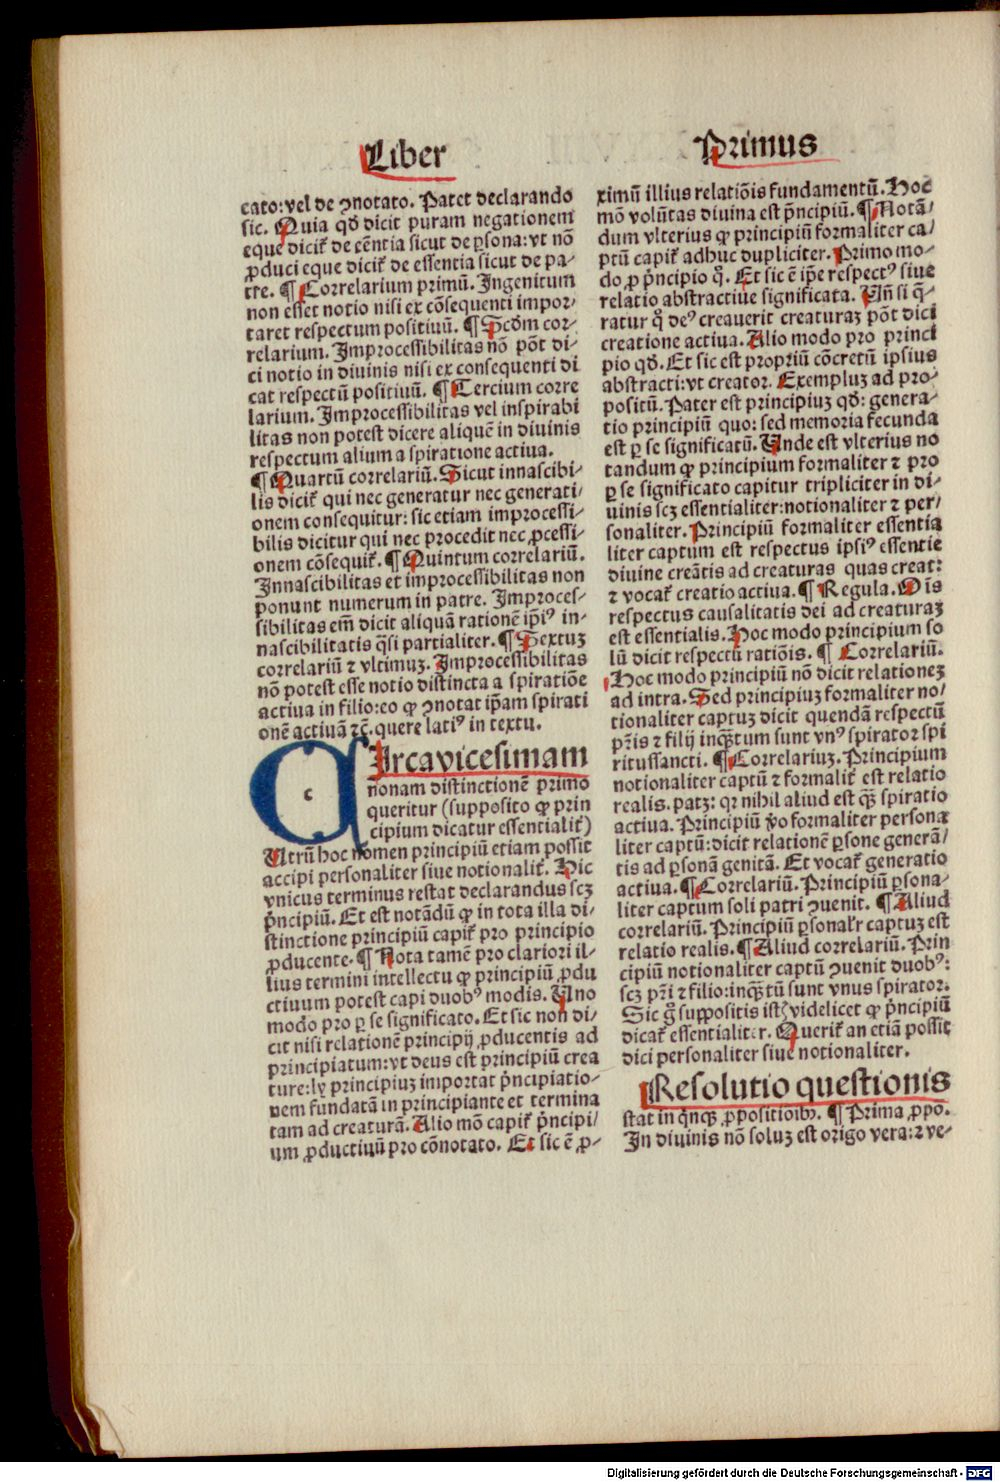 Liber
Primus
cato: vel de ꝯnotato. Patet declarando
sic. Quia qd̓ dicit puram negationem
eque dicit̉ de eēntia sicut de ꝑsona: vt nō
ꝓduci eque dicit̉ de essentia sicut de pa-
tre. ¶ Correlarium primū. Ingenitum
non esset notio nisi ex cōsequenti impor-
taret respectum positiuū. ¶ Scd̓m cor-
relarium. Improcessibilitas nō pōt di-
ci notio in diuinis nisi ex consequenti di
cat respectū positiuū. ¶ Tercium corre
larium. Improcessibilitas vel inspirabi
litas non potest dicere aliquē in diuinis
respectum alium a spiratione actiua.
¶ Quartū correlariū. Sicut innascibi-
lis dicit̉ qui nec generatur nec generati-
onem consequitur: sic etiam improcessi-
bilis dicitur qui nec procedit nec ꝓcessi-
onem cōsequit̉. ¶ Quintum correlariū.
Innascibilitas et improcessibilitas non
ponunt numerum in patre. Improces-
sibilitas em̄ dicit aliquā rationē ip̄iꝰ in-
nascibilitatis q̄si partialiter. ¶ Sextuꝫ
correlariū ⁊ vltimuꝫ. Improcessibilitas
nō potest esse notio distincta a spiratiōe
actiua in filio: eo ꝙ ꝯnotat ip̄am spirati
onē actiuā ⁊c̄. quere latiꝰ in textu.
c
CIrca vicesimam
nonam distinctionē primo
queritur (supposito ꝙ prin
cipium dicatur essentialit̉)
Utrū hoc nomen principiū etiam possit
accipi personaliter siue notionalit̉. Hic
vnicus terminus restat declarandus scꝫ
pͥncipiū. Et est notādū ꝙ in tota illa di-
stinctione principiū capit̉ pro principio
ꝓducente. ¶ Nota tamē pro clariori il-
lius termini intellectu ꝙ principiū ꝓdu
ctiuum potest capi duobꝰ modis. Uno
modo pro ꝑ se significato. Et sic non di-
cit nisi relationē principij ꝓducentis ad
principiatum: vt deus est principiū crea
ture: ly principiuꝫ importat pͥncipiatio-
nem fundatā in principiante et termina
tam ad creaturā. Alio mō capit̉ pͥncipi-
um ꝓductiuū pro cōnotato. Et sic ē ꝓ-
ximū illius relatiōis fundamentū. Hoc
mō volūtas diuina est pͥncipiū. ¶ Notā-
dum vlterius ꝙ principiū formaliter ca-
ptū capit̉ adhuc dupliciter. Primo mo-
do ꝓ pͥncipio qͦ. Et sic ē ip̄e respectꝰ siue
relatio abstractiue significata. Un̄ si q̄-
ratur qͦ deꝰ creauerit creaturaꝫ pōt dici
creatione actiua. Alio modo pro princi
pio qd̓. Et sic est propriū cōcretū ipsius
abstracti: vt creator. Exempluꝫ ad pro-
positū. Pater est principiuꝫ qd̓: genera-
tio principiū quo: sed memoria fecunda
est ꝑ se significatū. Unde est vlterius no
tandum ꝙ principium formaliter ⁊ pro
ꝑ se significato capitur tripliciter in di-
uinis scꝫ essentialiter: notionaliter ⁊ per-
sonaliter. Principiū formaliter essentia
liter captum est respectus ipsiꝰ essentie
diuine creātis ad creaturas quas creat:
⁊ vocat̉ creatio actiua. ¶ Regula. Oīs
respectus causalitatis dei ad creaturaꝫ
est essentialis. Hoc modo principium so
lū dicit respectū ratiōis. ¶ Correlariū.
Hoc modo principiū nō dicit relationeꝫ
ad intra. Sed principiuꝫ formaliter no-
tionaliter captuꝫ dicit quendā respectū
pr̄is ⁊ filij inqͣtum sunt vnꝰ spirator spi
ritussancti. ¶ Correlariuꝫ. Principium
notionaliter captū ⁊ formalit̉ est relatio
realis. patꝫ: qꝛ nihil aliud est qͣꝫ spiratio
actiua. Principiū v̓o formaliter persona
liter captū: dicit relationē ꝑsone generā-
tis ad ꝑsonā genitā. Et vocat̉ generatio
actiua. ¶ Correlariū. Principiū ꝑsona-
liter captum soli patri ꝯuenit. ¶ Aliud
correlariū. Principiū ꝑsonal'r captuꝫ est
relatio realis. ¶ Aliud correlariū. Prin
cipiū notionaliter captū ꝯuenit duobꝰ:
scꝫ pr̄i ⁊ filio: inqͣtū sunt vnus spirator.
Sic gͦ suppositis istꝭ videlicet ꝙ pͥncipiū
dicat̉ essentialiter. Querit̉ an etiā possit
dici personaliter siue notionaliter.
Resolutio questionis
stat in qͥnqꝫ ꝓpositioibꝰ. ¶ Prima ꝓpō.
In diuinis nō soluꝫ est origo vera: ⁊ ve-
Digitalisierung gefördert durch die Deutsche Forschungsgemeinschaft - DFG